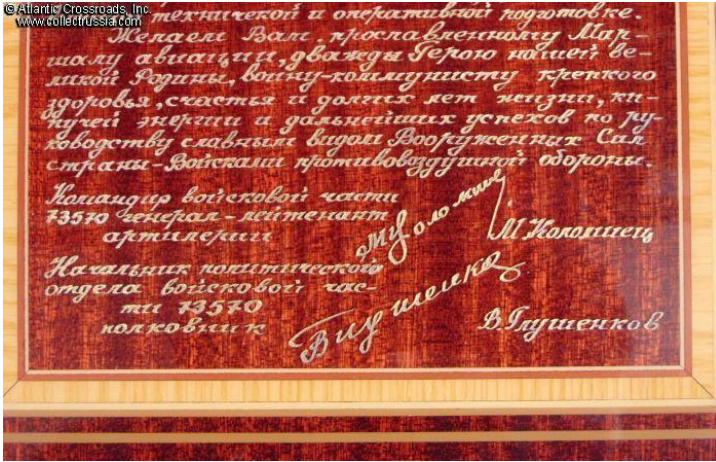 © Atlantic Crossroads, Inc.
www.collectrussia.com
технической и оперативной подготовке.
Желаем Вам, прославленному Мар-
шалу авиации, дважды Герою нашей ве-
ликой Родины, воину-коммунисту крепкого
здоровья, счастья и долгих лет жизни, ки-
пучей энергии и дальнейших успехов по ру-
ководству славным видом Вооруженних Сил
страны-Войсками противовоздушной обороны.
Командир войсковой части
73570 генерал-лейтенант
артилерии
М. Коломиец
Начальник политического
отдела войсковой час-
ти 73570
полковник
В. Глушенков